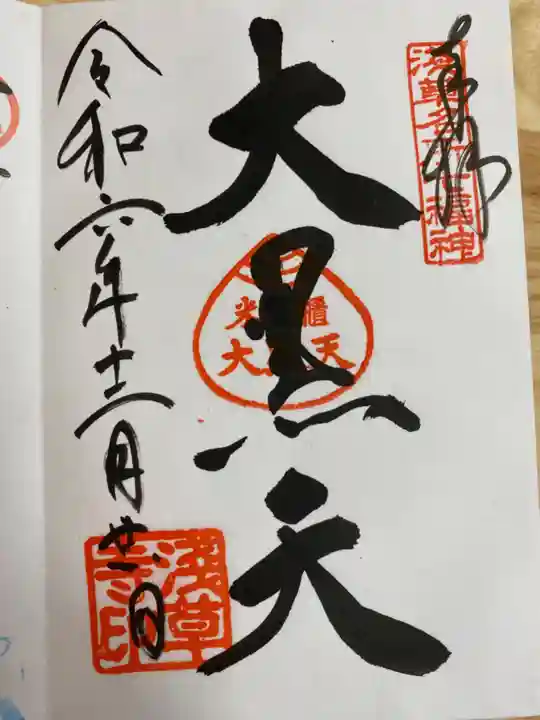 奉拝
浅草名所七福神
大黒天
米櫃
大黒天
令和六年十二月廿二日
浅草
寺印